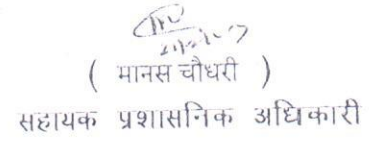 ( मानस चौधरी )
सहायक प्रशासनिक अधिकारी